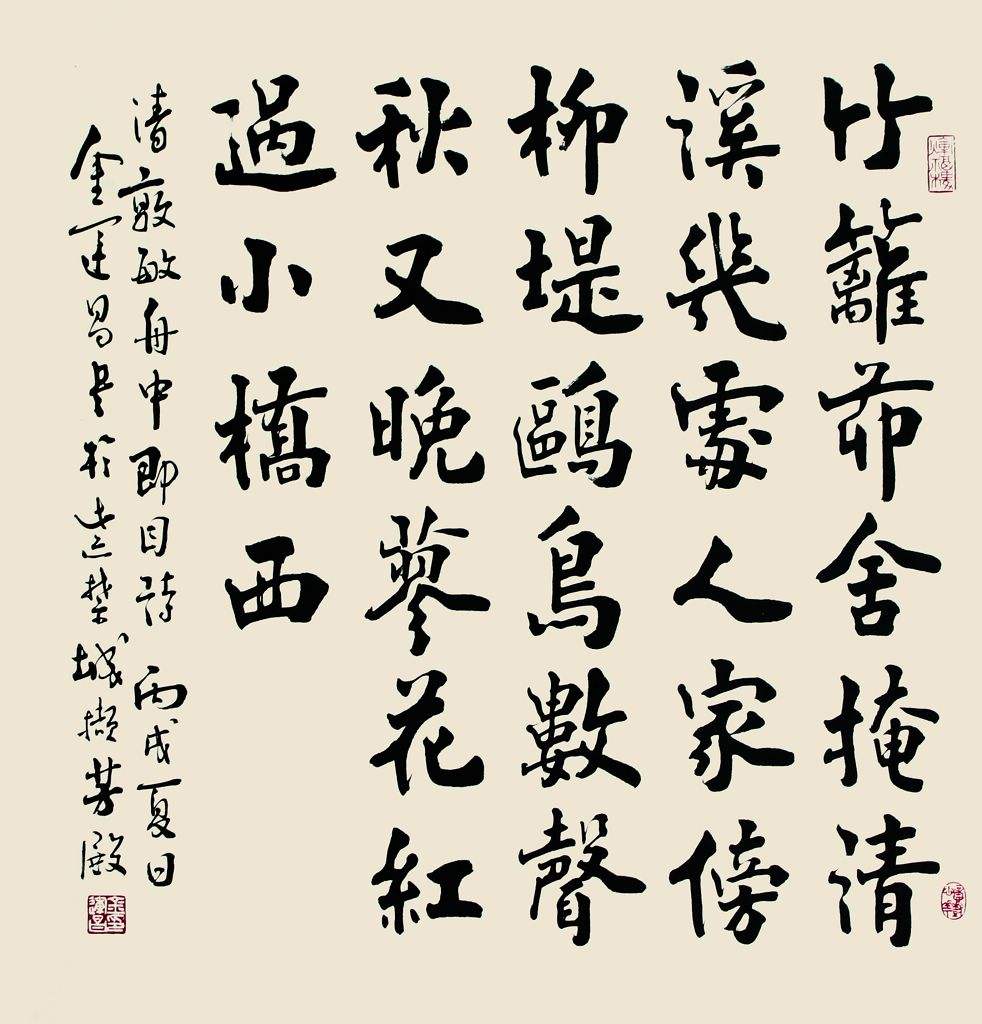 竹籬茆舍掩清
溪幾處人家傍
柳堤鷗鳥數聲
秋又晚蓼花紅
過小橋西
清敦敏舟中即目詩 丙戌夏日
金運昌書於遠禁城擷芳殿